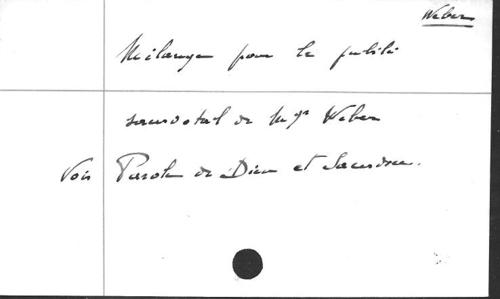 Weber
Mélanges pour le jubilé
sacerdotal de Mgr Weber
Voir Parole de Dieu et Sacerdoce.